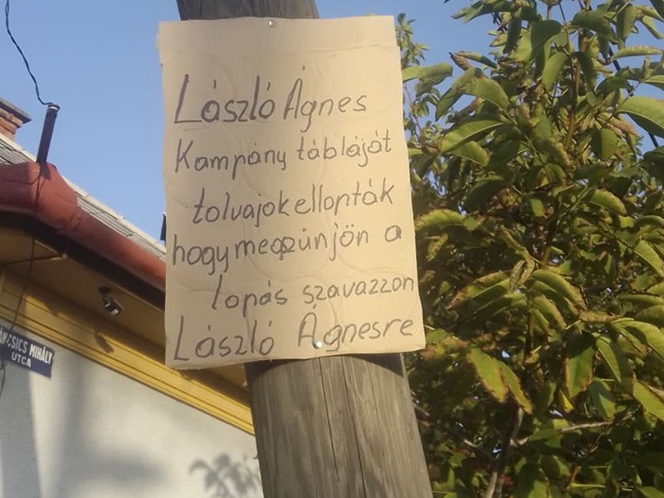 László Ágnes
Kampány tábláját
tolvajok ellopták
hogy megszünjön a
lopás szavazzon
László Ágnesre
NCSICS MIHÁLY
UTCA